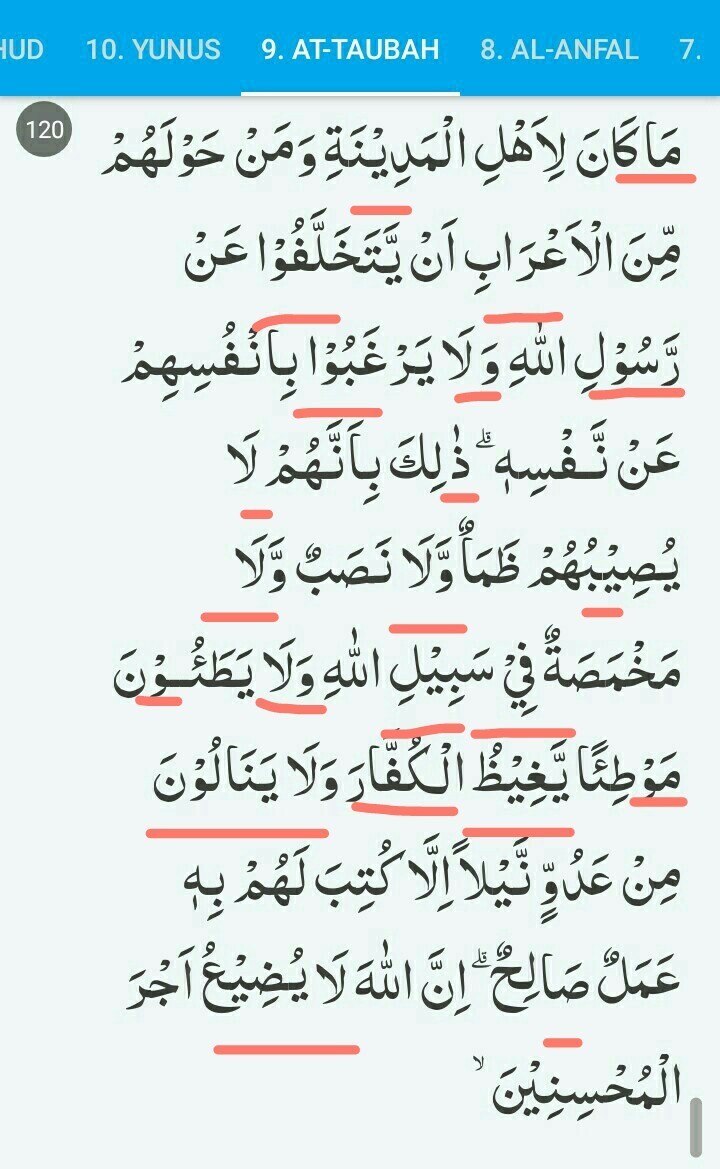 HUD 10. YUNUS 9. AT-TAUBAH 8. AL-ANFAL 7.
120
مَا كَانَ لِاَهْلِ الْمَدِيْنَةِ وَمَنْ حَوْلَهُمْ
مِّنَ الْاَعْرَابِ اَنْ يَّتَخَلَّفُوْا عَنْ
رَّسُوْلِ اللّٰهِ وَلَا يَرْغَبُوْا بِاَنْفُسِهِمْ
عَنْ نَّفْسِهٖ ۗ ذٰلِكَ بِاَنَّهُمْ لَا
يُصِيْبُهُمْ ظَمَاٌ وَّلَا نَصَبٌ وَّلَا
مَخْمَصَةٌ فِيْ سَبِيْلِ اللّٰهِ وَلَا يَطَـُٔوْنَ
مَوْطِئًا يَّغِيْظُ الْكُفَّارَ وَلَا يَنَالُوْنَ
مِنْ عَدُوٍّ نَّيْلًا اِلَّا كُتِبَ لَهُمْ بِهٖ
عَمَلٌ صَالِحٌ ۗ اِنَّ اللّٰهَ لَا يُضِيْعُ اَجْرَ
الْمُحْسِنِيْنَ ۙ